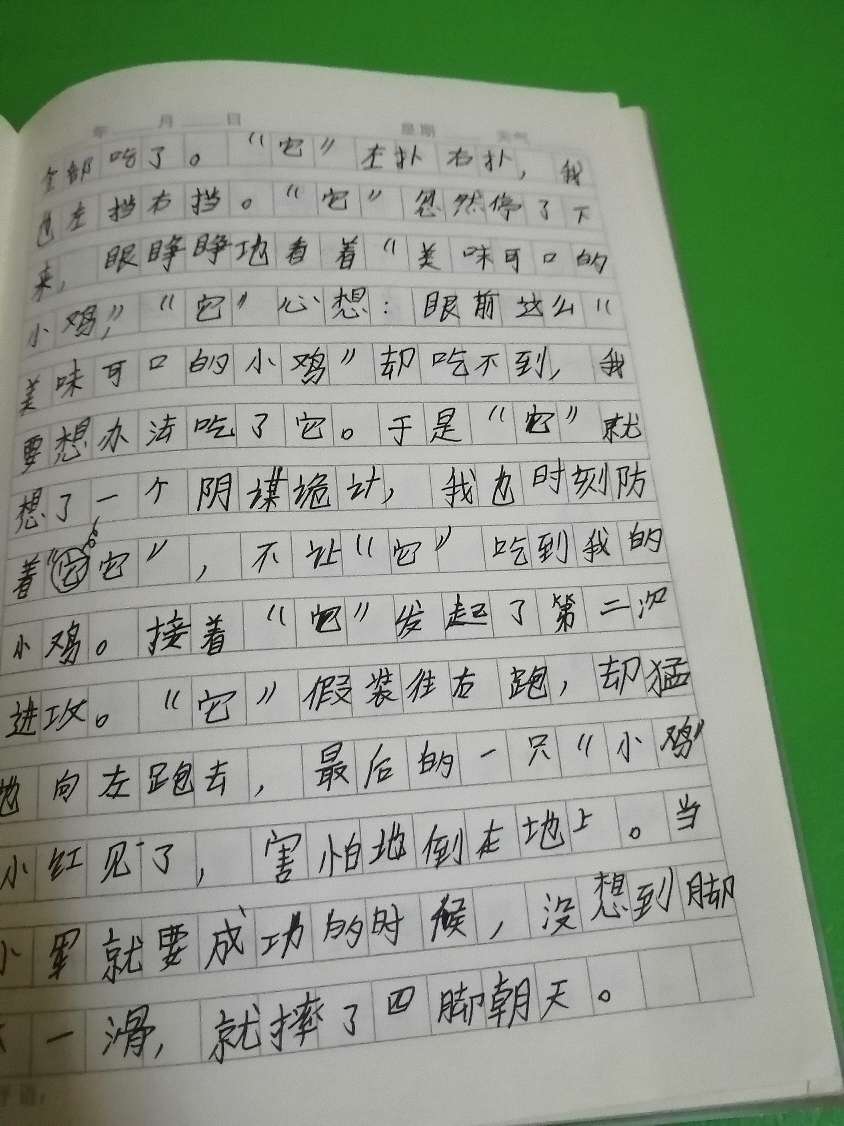 年 月 日 星期 天气
全部吃了。“它”左扑右扑，我
也左挡右挡。“它”忽然停了下
来，眼睁睁地看着“美味可口的
小鸡”，“它”心想：眼前这么“
美味可口的小鸡”却吃不到，我
要想办法吃了它。于是“它”就
想了一个阴谋诡计，我也时刻防
着“它”，不让“它”吃到我的
小鸡。接着“它”发起了第二次
进攻。“它”假装往右跑，却猛
地向左跑去，最后的一只“小鸡”
小红见了，害怕地倒在地上。当
小军就要成功的时候，没想到脚
一滑，就摔了四脚朝天。